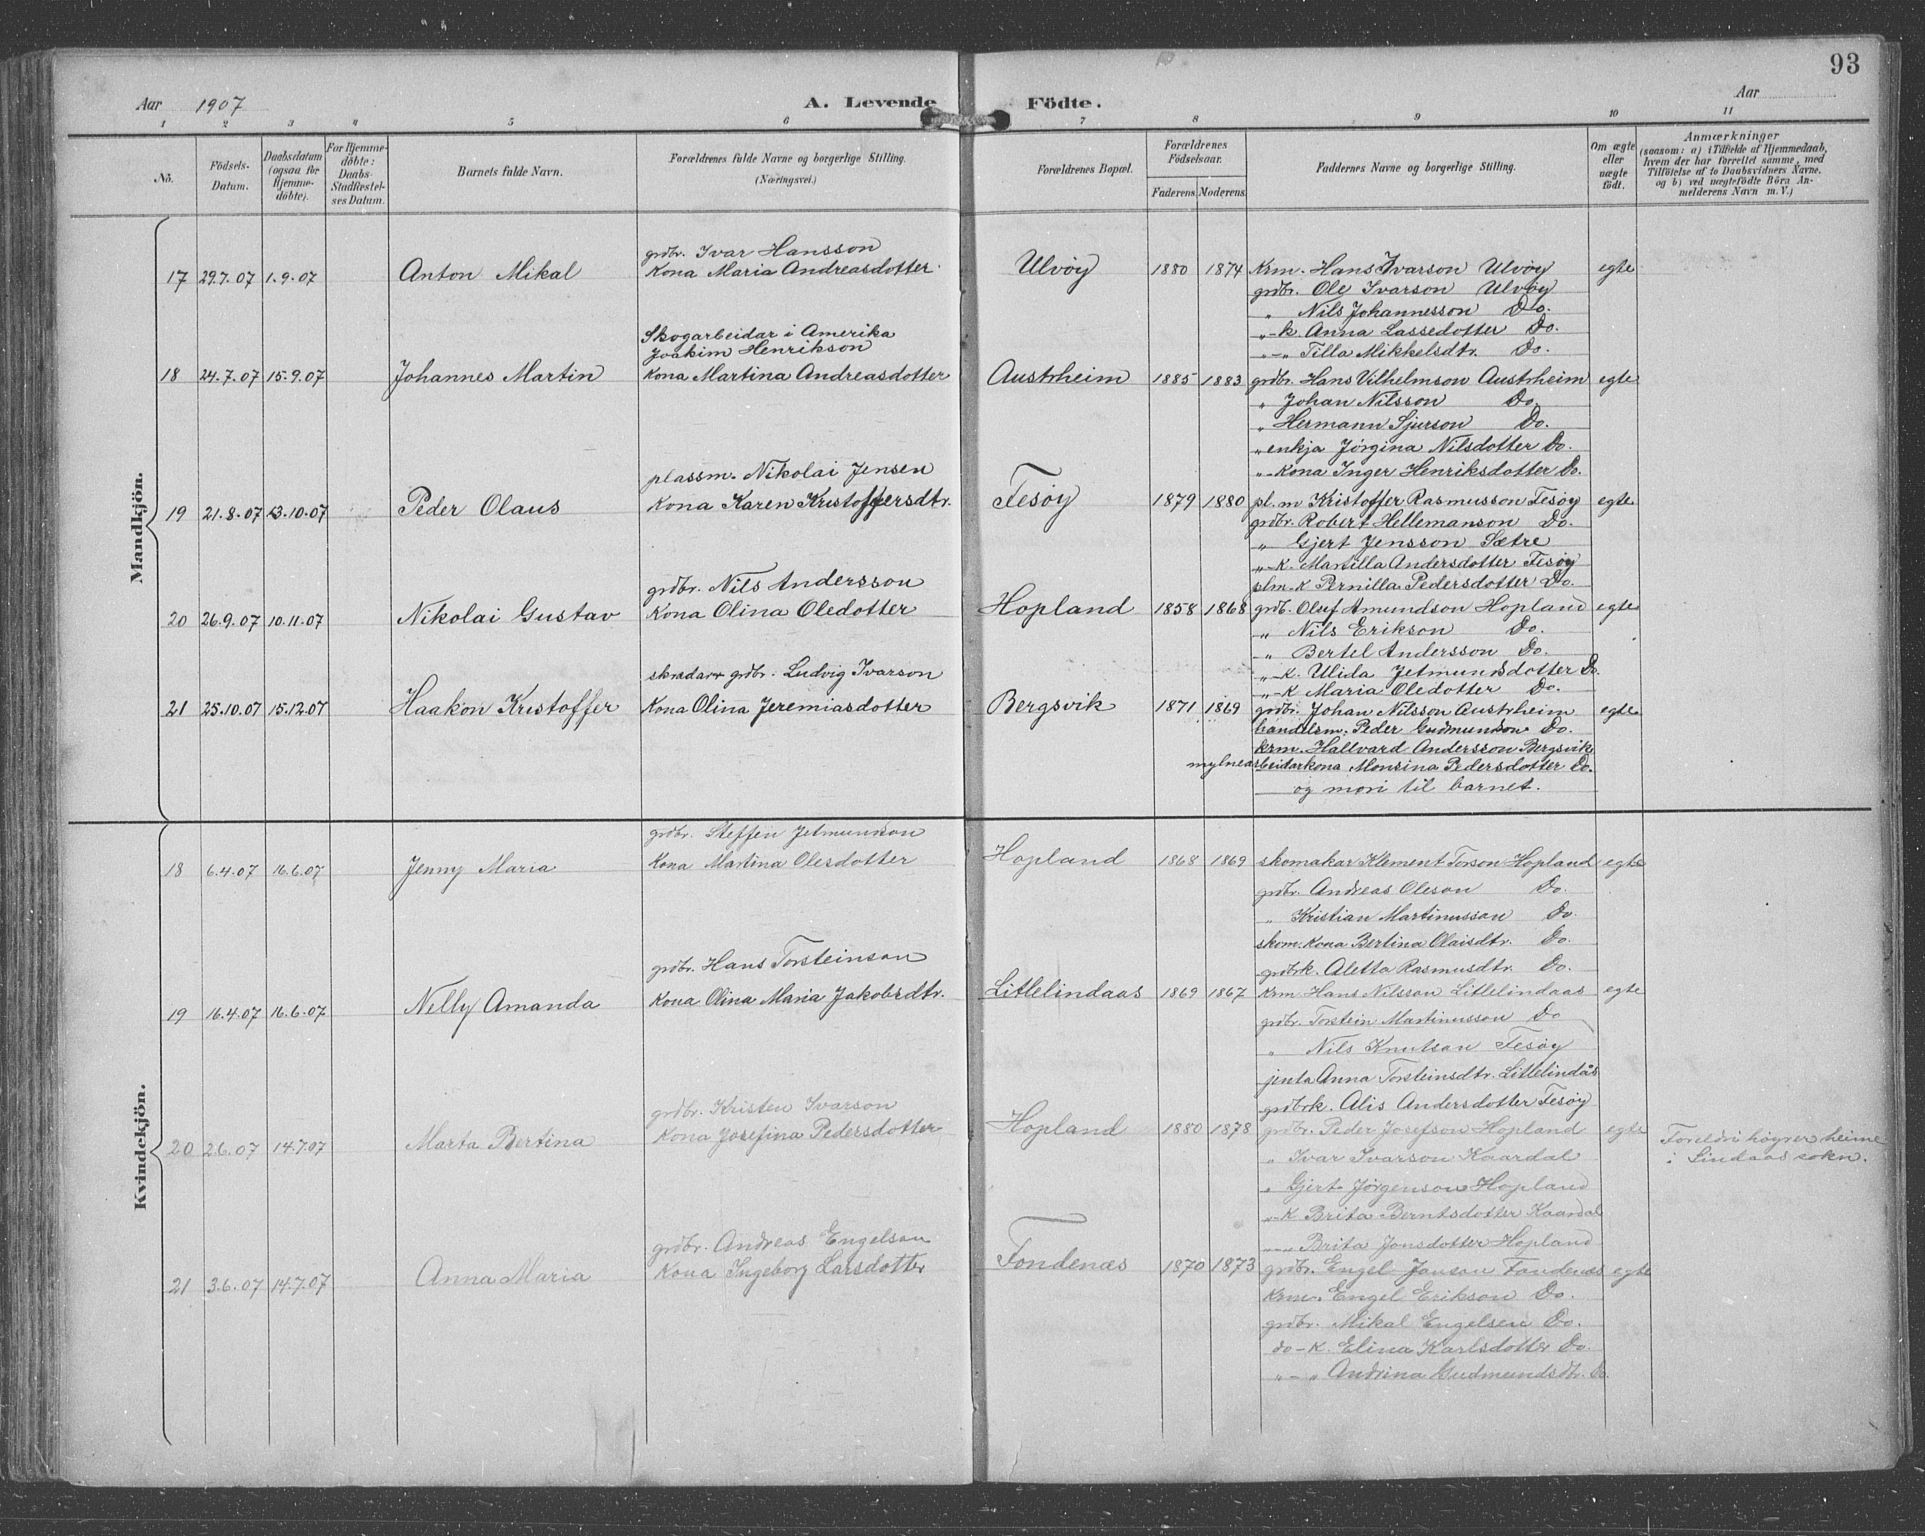 93
Aar 1907
A. Levende Födte.
Aar
1 2 3 4 5 6 7 8 9 10 11
No. Födsels-Datum. Daabsdatum (ogsaa for Hjemmedöbte). For Hjemmedöbte: Daabs-Stadfæstelses Datum. Barnets fulde Navn. Forældrenes fulde Navne og borgerlige Stilling. (Næringsvei.) Forældrenes Bopæl. Forældrenes Födselsaar. Faderens. Moderens. Faddernes Navne og borgerlige Stilling. Om ægte eller uægte födt. Anmærkninger (saasom: a) i Tilfælde af Hjemmedaab, hvem der har forrettet samme, med Tilföielse af to Daabsvidners Navne, og b) ved uægtefödte Börn Anmelderens Navn m. V.)
Mandkjön.
grdbr. Ivar Hansson
17 29.7.07 1.9.07 Anton Mikal Kona Maria Andreasdotter Ulvøy 1880 1874 Krm. Hans Ivarson Ulvöy egte
grdbr. Ole Ivarson Ulvöy
" Nils Johannesson Do.
"-k. Anna Lassedotter Do.
"-" Tilla Mikkelsdtr. Do.
Skogarbeidar i Amerika
Joakim Henrikson
18 24.7.07 15.9.07 Johannes Martin Kona Martina Andreasdotter Austrheim 1885 1883 grdbr. Hans Vilhelmson Austrheim egte
" Johan Nilsson Do.
" Hermann Sjurson Do.
" enkja Jørgina Nilsdotter Do.
"-Kona Inger Henriksdotter Do.
plassm. Nikolai Jensen
19 21.8.07 13.10.07 Peder Olaus Kona Karen Kristoffersdtr. Fesøy 1879 1880 pl.m Kristoffer Rasmusson Fesøy egte
grdbr. Robert Hellemanson Do.
" Gjert Jensson Sætre
"-K. Martilla Andersdotter Fesøy
plm-K Pernilla Pedersdotter Do.
grdbr. Nils Andersson
20 26.9.07 10.11.07 Nikolai Gustav Kona Olina Oledotter Hopland 1858 1868 grdb. Oluf Amundson Hopland egte
" Nils Erikson Do.
" Bertel Andersson Do.
"-K. Ulida Jetmundsdotter Do.
"-K Maria Oledotter Do.
skredar grdbr. Ludvig Ivarson
21 25.10.07 15.12.07 Haakon Kristoffer Kona Olina Jeremiasdotter Bergsvik 1871 1869 grdbr. Johan Nilsson Austrheim egte
handelsm. Peder Gudmundson Do.
krm. Hallvard Andersson Bergsvik
mylnearbeidarkona Monsina Pedersdotter Do.
og mori til barnet.
Kvindekjön.
grdbr. Steffen Jetmundson
18 6.4.07 16.6.07 Jenny Maria Kona Martina Olesdotter Hopland 1868 1869 skomakar Klement Torson Hopland egte
grdbr. Andreas Oleson Do.
" Kristian Martinusson Do.
skom. Kona Bertina Olaisdtr. Do.
grdbrk. Aletta Rasmusdtr. Do.
grdbr. Hans Torsteinson
19 16.4.07 16.6.07 Nelly Amanda Kona Olina Maria Jakobsdtr. Litlelindaas 1869 1867 Krm. Hans Nilsson Litlelindaas egte
grdbr. Torstein Martinusson Do
" Nils Knutson Fesøy
jenta Anna Torsteinsdtr. Litlelindås
grdbrk. Alis Andersdotter Fesøy
grdbr. Kristen Ivarson
20 2.6.07 14.7.07 Marta Bertina Kona Josefina Pedersdotter Hopland 1880 1878 grdbr. Peder Josefson Hopland egte Foreldri höyrer heime
" Ivar Ivarson Kaardal i Lindaas sokn.
" Gjert Jørgenson Hopland
"-K Brita Berntsdotter Kaardal
"-" Brita Jonsdotter Hopland
grdbr. Andreas Engelson
21 3.6.07 14.7.07 Anna Maria Kona Ingeborg Larsdotter Fondenæs 1870 1873 grdbr. Engel Janson Fondenæs egte
Krm. Engel Erikson Do.
grdbr. Mikal Engelsen Do.
do-K. Elina Karlsdotter Do.
"-" Andrina Gudmundsdtr. Do.